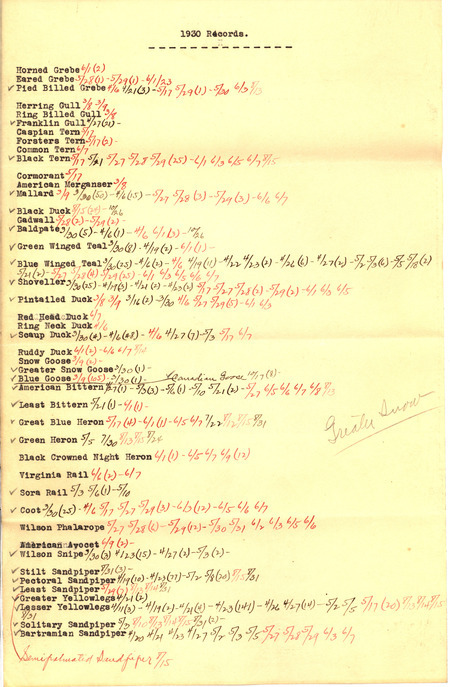 1930 Records.
Horned Grebe 6/1(2)
Eared Grebe 5/28(1)- 5/29(1)- 6/1/23
✓Pied Billed Grebe 4/6 4/21(3)- 5/17 5/29(1)- 5/30 6/3 7/13
Herring Gull 3/8 3/9
Ring Billed Gull 3/8
✓Franklin Gull 4/27(21)-
Caspian Tern 5/17
Forsters Tern 5/17(2)-
Common Tern 6/7
✓Black Tern 5/17 5/21 5/27 5/28 5/29(25)- 6/1 6/3 6/5 6/7 7/15
Cormorant 5/17
American Merganser 3/8
✓Mallard 3/9 3/30(50)- 4/6(15)- 5/27 5/28(3)- 5/29(3)- 6/6 6/7
✓Black Duck 10/26
Gadwall 5/28(2)- 5/29(2)-
✓Baldpate 3/30(5)- 4/6(1)- 4/6 6/1(3)- 10/26
✓Green Winged Teal 3/30(8)- 4/19(2)- 6/1(1)-
✓Blue Winged Teal 3/30(25)- 4/6(2)- 4/6 4/19(11)- 4/22 4/23(2)- 4/26(6)- 4/27(2)- 5/2-5/3(6)- 5/5 5/18(2)
5/21(2)- 5/27 5/28(4) 5/29(25)- 6/1 6/3 6/5 6/6 6/7
✓Shoveller 3/30(25)- 4/19(3)- 4/21(2)- 4/23(2) 5/17 5/27 5/28(2)- 5/29(2)- 6/1 6/3 6/5
✓Pintailed Duck 3/8 3/9 3/16(2)- 3/30 4/6 5/27 5/29(5)- 6/1 6/3
Red Head Duck 6/7
Ring Neck Duck 4/6
✓Scaup Duck 3/30(8)- 4/6(8)- 4/6 4/27(7)- 5/3 5/17 6/7
Ruddy Duck 6/1(2)- 6/6 6/7
Snow Goose 3/9(6)-
✓Greater Snow Goose 3/30(1)-
✓Blue Goose 3/9(105)- 3/30(1)- ✓Canadian Goose
✓American Bittern 5/10 5/21(2)- 5/27 6/5 6/6 6/7 6/8 7/13
✓Least Bittern 5/21(1)- 6/1(1)-
✓Great Blue Heron 5/17(4)- 6/1(1)- 6/5 6/7 7/22 7/12 7/15 8/31
Greater Snow
✓Green Heron 5/5 7/30 7/13 7/15 7/24
Black Crowned Night Heron 6/1(1)- 6/5 6/7 6/9(12)
Virginia Rail 6/6(2)- 6/7
✓Sora Rail 5/3 5/6(1)- 5/10
✓Coot 3/30(25)- 4/6 5/17 5/27 5/29(3)- 6/3(12)- 6/5 6/6 6/7
Wilson Phalarope 5/27 5/28(6)- 5/29(12)- 5/30 5/31 6/2 6/3 6/5 6/6
American Avocet 6/9(2)-
✓Wilson Snipe 3/30(3) 4/23(15)- 4/27(2)- 5/3(2)-
✓Stilt Sandpiper 7/31(3)-
✓Pectoral Sandpiper 4/19(10)- 4/23(37)- 5/2 5/8(20) 7/15 7/31
✓Least Sandpiper
✓Greater Yellowlegs 4/21(2)
✓Lesser Yellowlegs 4/11(3)- 4/19(2)- 4/21(4)- 4/23(141)- 4/26 4/27(14)- 5/2 5/5 5/17(20) 7/13 7/14 7/15
7/31
✓Solitary Sandpiper 7/31(2)-
✓Bartramian Sandpiper 4/20 4/21 4/23 4/27 5/2 5/3 5/5 5/27 5/28 5/29 6/3 6/7
Semipalmated Sandpiper 7/15